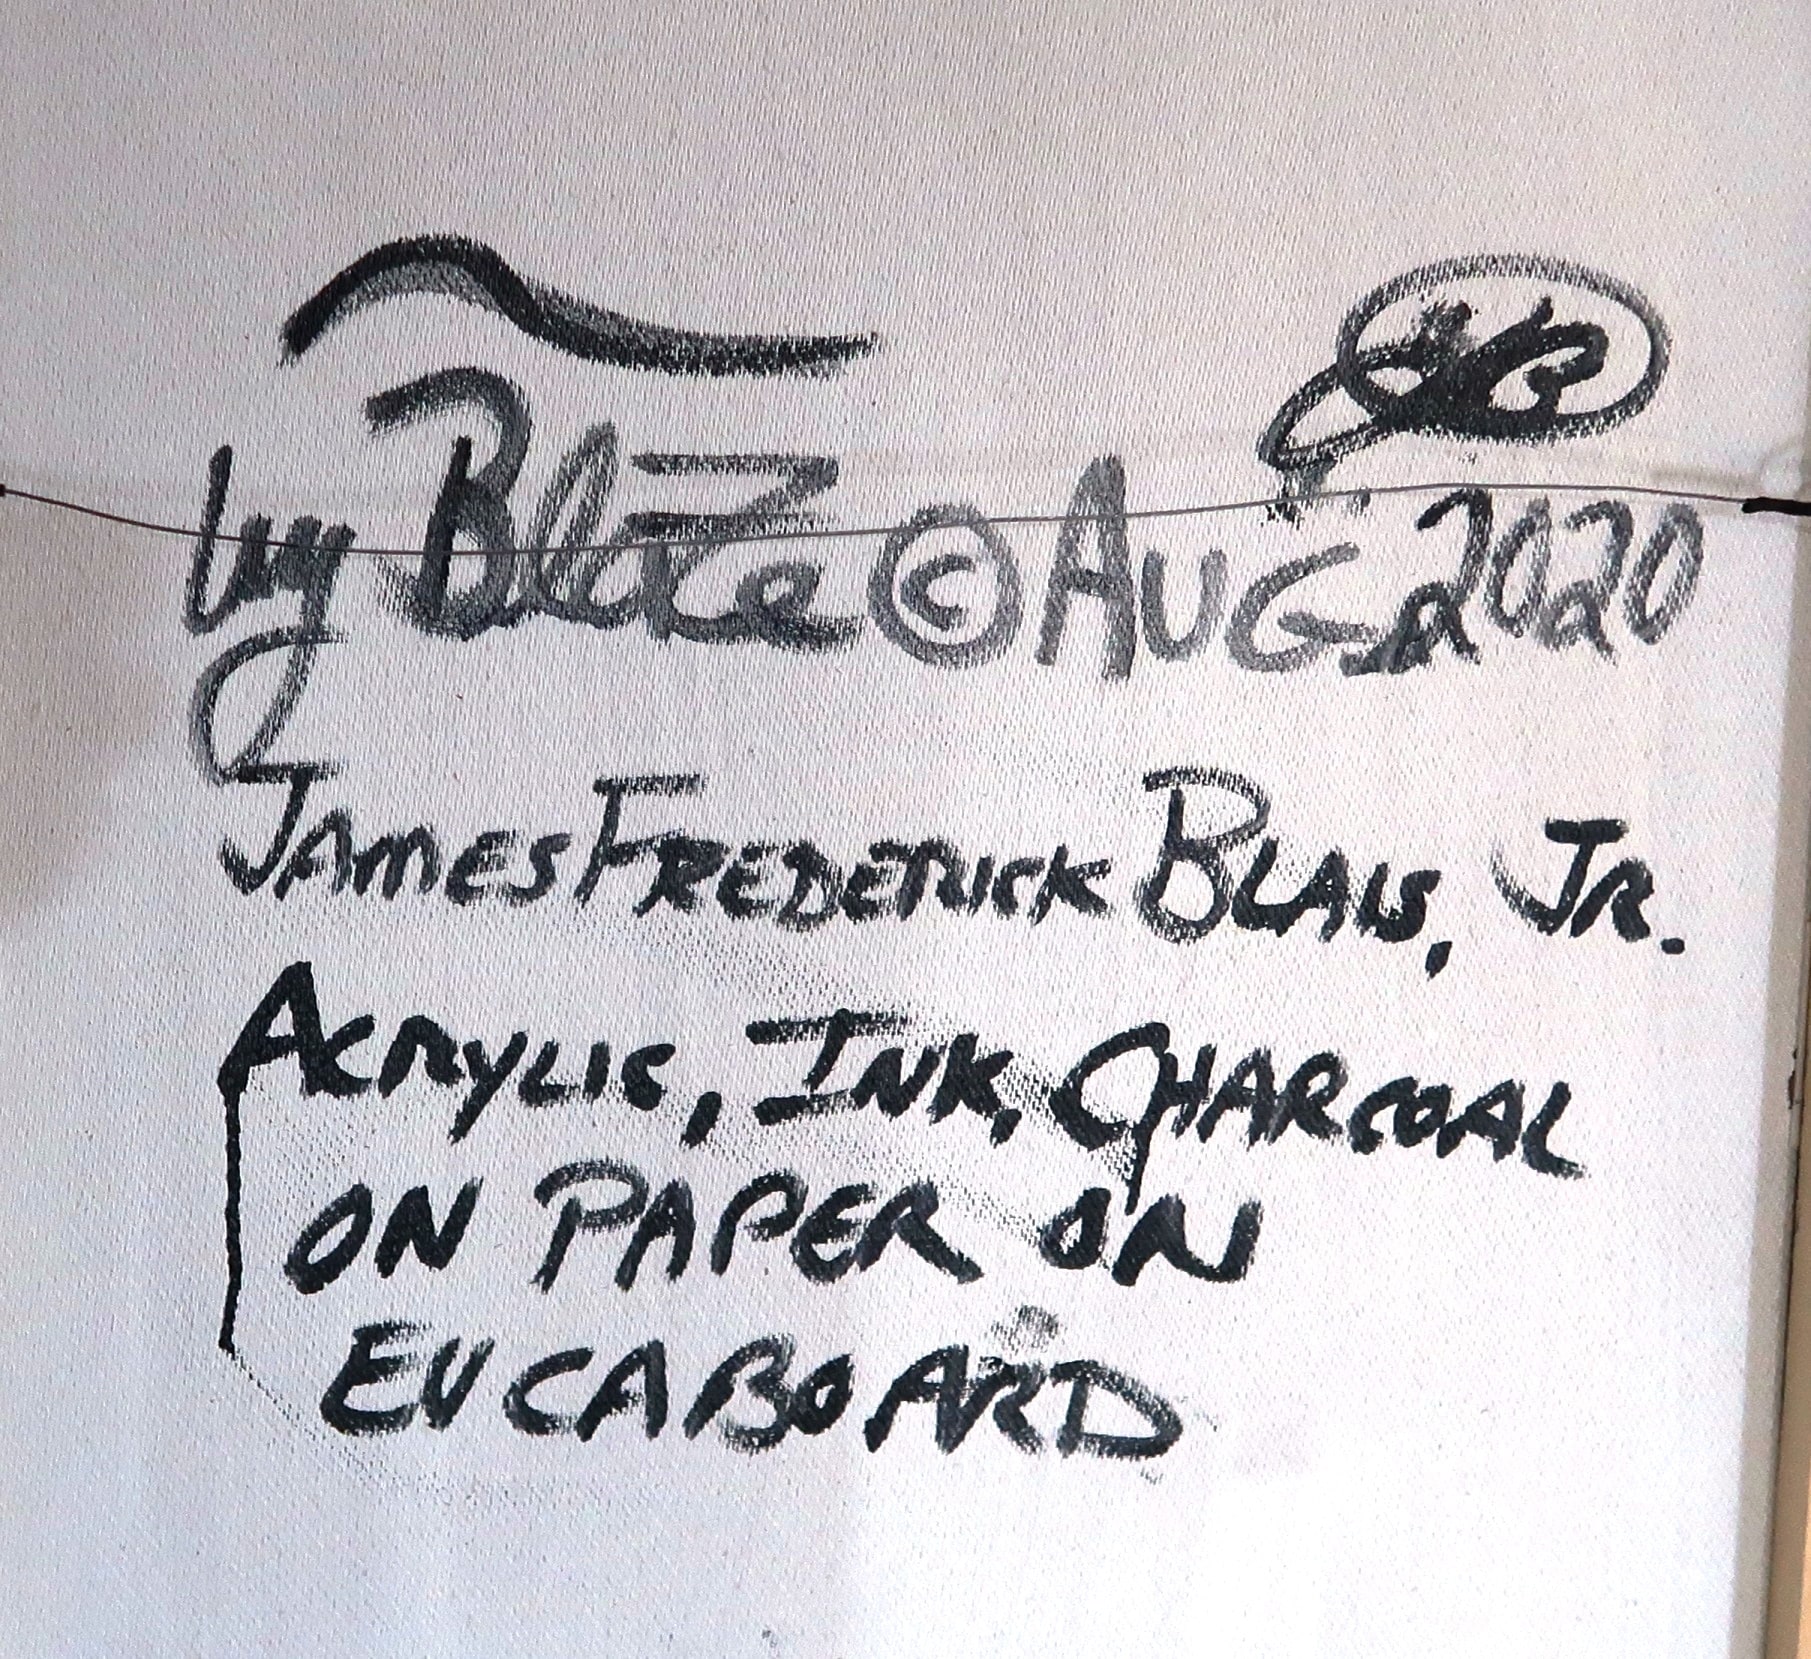 by Blaze © Aug. 2020
James Frederick Blais, Jr.
Acrylic, Ink, Charcoal
on Paper on
Eucaboard